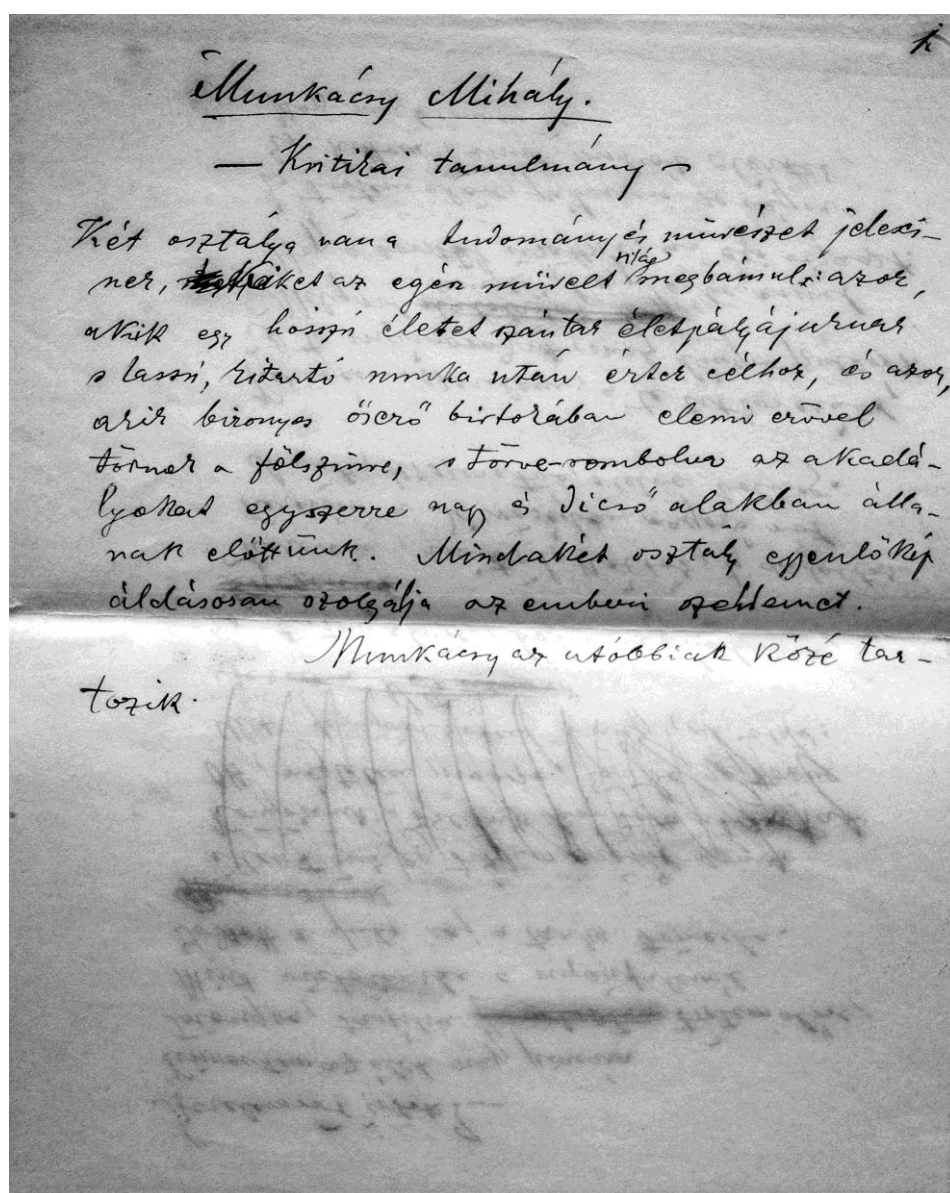 Munkácsy Mihály.
— Kritikai tanulmány —
Két osztálya van a tudomány és művészet jelesei-
nek, kiket az egész művelt világ megbámul: azok,
akik egy hosszú életet szántak életpályájuknak
s lassú, kitartó munka után értek célhoz, és azok,
akik bizonyos őserő birtokában elemi erővel
törnek a fölszinre, s törve-rombolva az akadá-
lyokat egyszerre nagy és dicső alakban álla-
nak előttünk. Mindakét osztály egyenlőkép
áldásosan szolgálja az emberi szellemet.
Munkácsy az utóbbiak közé tar-
tozik.